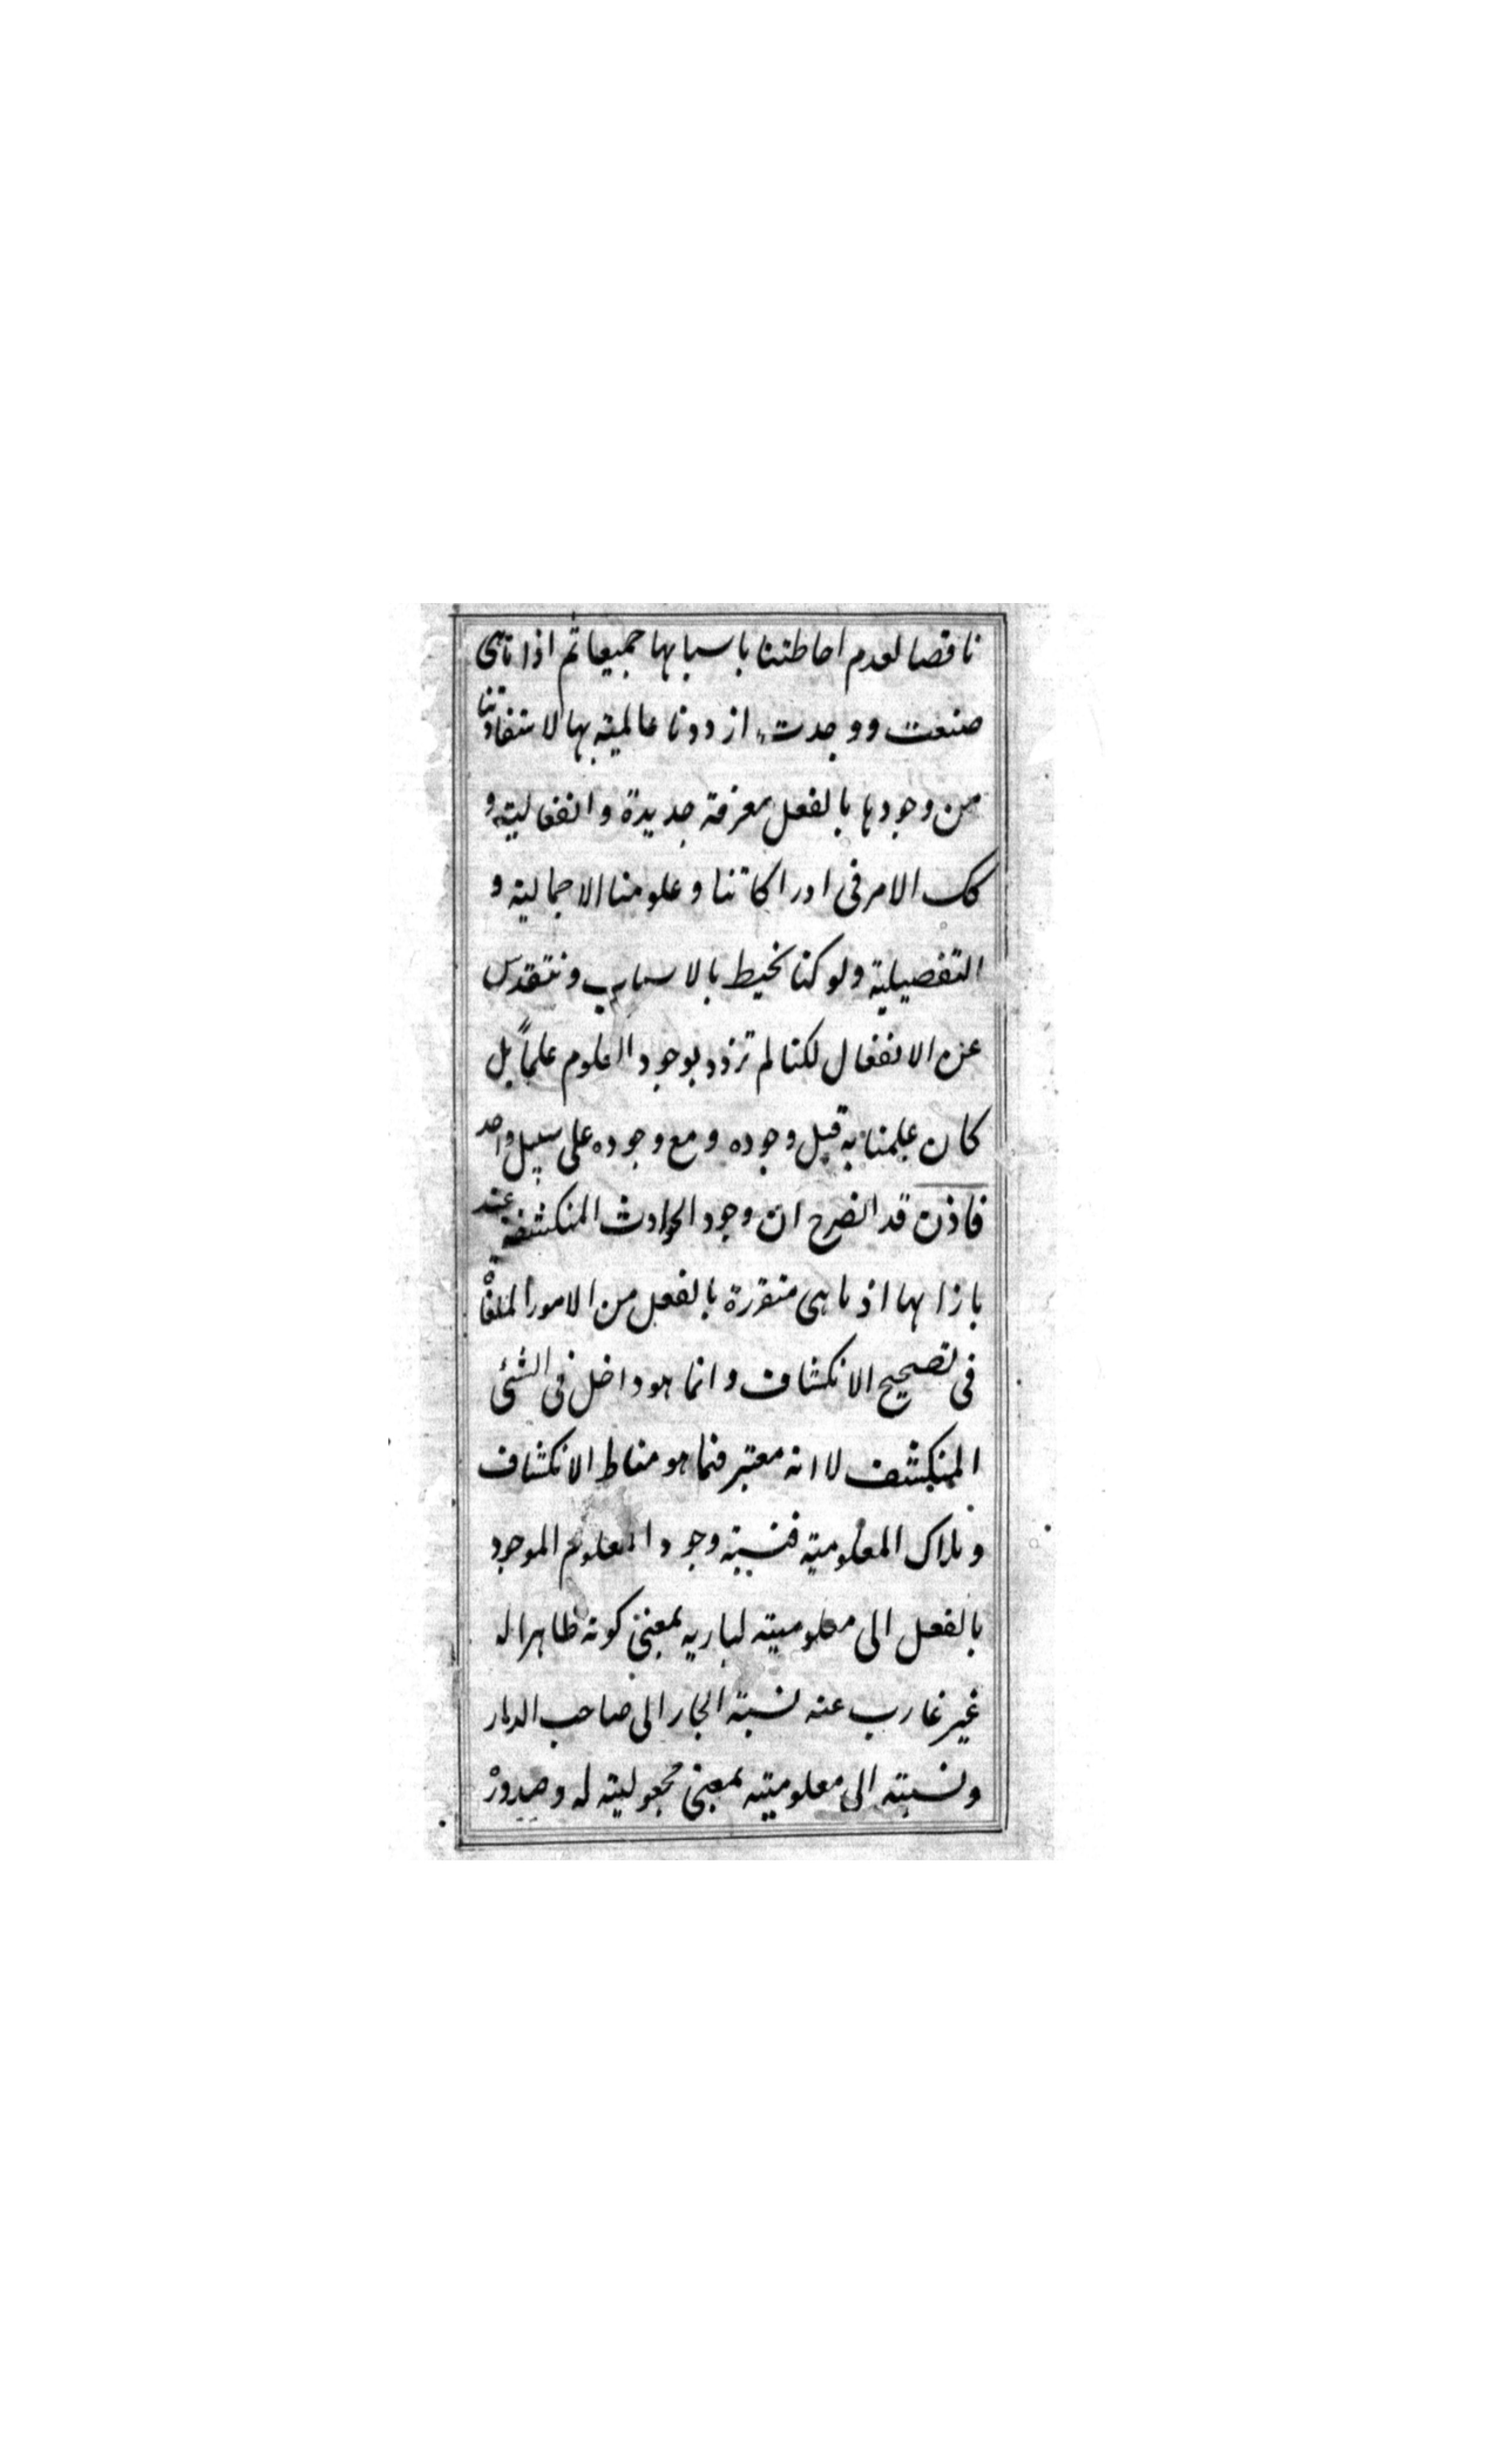 ناقصا لعدم احاطتنا باسبابها جميعا ثم اذا ما هی
صنعت ووجدت ازددنا عالمية بها لاستفادتنا
من وجودها بالفعل معرفة جديدة وانفعالية و
كك الامر فی ادراكاتنا وعلومنا الاجمالية و
التفصيلية ولو كنا نحيط بالاسباب ونتقدس
عن الانفعال لكنا لم نزدد بوجود المعلوم علماً بل
كان علمنا به قبل وجوده ومع وجوده علی سبيل واحد
فاذن قد انصرح ان وجود الحوادث المنكشفة عند
بارئها اذ ما هی متقررة بالفعل من الامور الملغاة
فی تصحيح الانكشاف وانما هو داخل فی الشئ
المنكشف لا انه معتبر فيما هو مناط الانكشاف
وملاك المعلومية فنسبة وجود المعلوم الموجود
بالفعل الی معلوميته لباريه بمعنی كونه ظاهرا له
غير عازب عنه نسبة الجار الی صاحب الدار
ونسبته الی معلوميته بمعنی مجعوليته له وصدوره